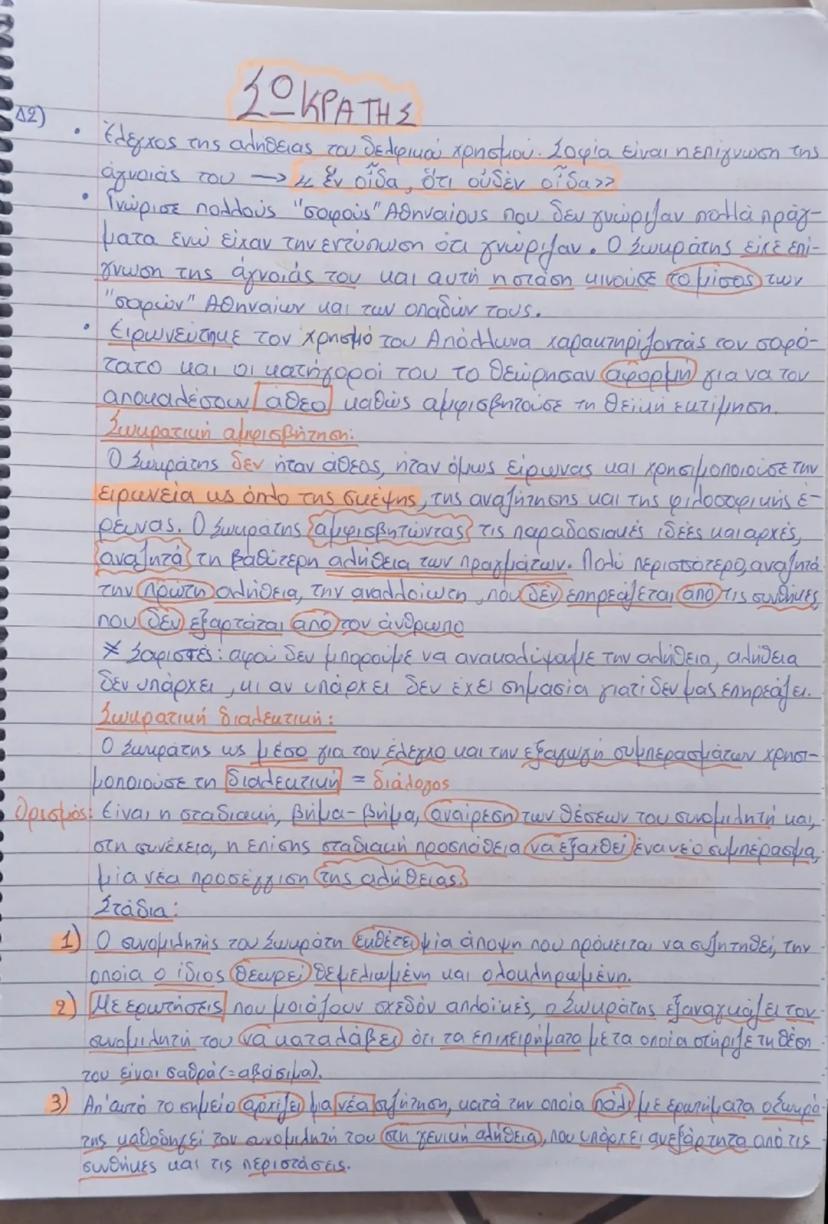 ΣΩΚΡΑΤΗΣ
Δ2)
• Έλεγχος της αλήθειας του δελφικού χρησμού. Σοφία είναι η επίγνωση της
άγνοιάς του → «Ἓν οἶδα, ὅτι οὐδὲν οἶδα»
• Γνώρισε πολλούς "σοφούς" Αθηναίους που δεν γνώριζαν πολλά πράγ-
ματα ενώ είχαν την εντύπωση ότι γνώριζαν. Ο Σωκράτης είχε επί-
γνωση της άγνοιάς του και αυτή η στάση κινούσε το μίσος των
"σοφών" Αθηναίων και των οπαδών τους.
• Ειρωνεύτηκε τον χρησμό του Απόλλωνα χαρακτηρίζοντάς τον σοφό-
τατο και οι κατήγοροί του το θεώρησαν αφορμή για να τον
αποκαλέσουν άθεο καθώς αμφισβητούσε τη θεϊκή εκτίμηση.
Σωκρατική αμφισβήτηση:
Ο Σωκράτης δεν ήταν άθεος, ήταν όμως είρωνας και χρησιμοποιούσε την
ειρωνεία ως όπλο της σκέψης, της αναζήτησης και της φιλοσοφικής έ-
ρευνας. Ο Σωκράτης αμφισβητώντας τις παραδοσιακές ιδέες και αρχές,
αναζητά τη βαθύτερη αλήθεια των πραγμάτων. Πολύ περισσότερο, αναζητά
την πρώτη αλήθεια, την αναλλοίωτη, που δεν επηρεάζεται από τις συνθήκες
που δεν εξαρτάται από τον άνθρωπο
* Σοφιστές: αφού δεν μπορούμε να ανακαλύψουμε την αλήθεια, αλήθεια
δεν υπάρχει, κι αν υπάρχει δεν έχει σημασία γιατί δεν μας επηρεάζει.
Σωκρατική διαλεκτική:
Ο Σωκράτης ως μέσο για τον έλεγχο και την εξαγωγή συμπερασμάτων χρησι-
μοποιούσε τη διαλεκτική = διάλογος
Ορισμός: Είναι η σταδιακή, βήμα-βήμα, αναίρεση των θέσεων του συνομιλητή και,
στη συνέχεια, η επίσης σταδιακή προσπάθεια να εξαχθεί ένα νέο συμπέρασμα,
μία νέα προσέγγιση της αλήθειας.
Στάδια:
1) Ο συνομιλητής του Σωκράτη εκθέτει μία άποψη που πρόκειται να συζητηθεί, την
οποία ο ίδιος θεωρεί θεμελιωμένη και ολοκληρωμένη.
2) Με ερωτήσεις που μοιάζουν σχεδόν απλοϊκές, ο Σωκράτης εξαναγκάζει τον
συνομιλητή του να καταλάβει ότι τα επιχειρήματα με τα οποία στήριζε τη θέση
του είναι σαθρά (=αβάσιμα).
3) Απ'αυτό το σημείο αρχίζει μια νέα συζήτηση, κατά την οποία πάλι με ερωτήματα ο Σωκρά-
της καθοδηγεί τον συνομιλητή του στη γενική αλήθεια, που υπάρχει ανεξάρτητα από τις
συνθήκες και τις περιστάσεις.